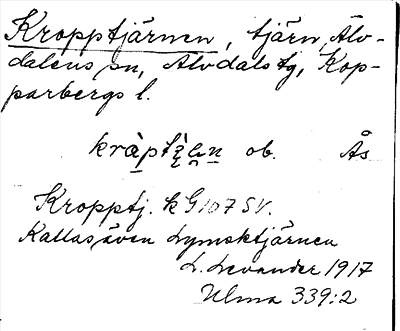 Kropptjärnen, tjärn, Älv-
dalens sn, Älvdals tg, Kop-
parbergs l.
ob. Ås
Kropptj. k G 107 SV.
Kallas även Lymsktjärnen
L. Levander 1917
Ulma 339:2